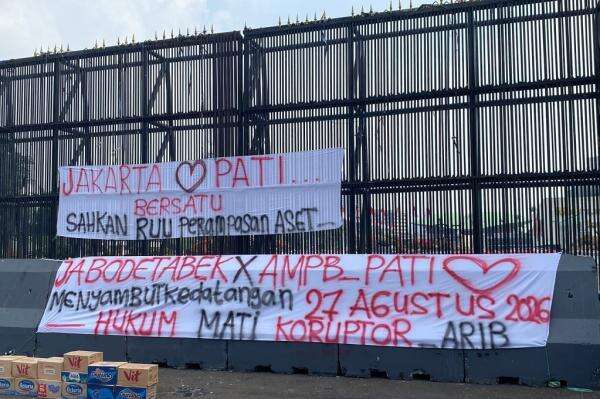 JAKARTA ♡ PATI...
BERSATU
SAHKAN RUU PERAMPASAN ASET_
JABODETABEK X AMPB_PATI ♡
MENYAMBUT KEDATANGAN 27 AGUSTUS 2026
— HUKUM MATI KORUPTOR_ARIB
Vit
Vit